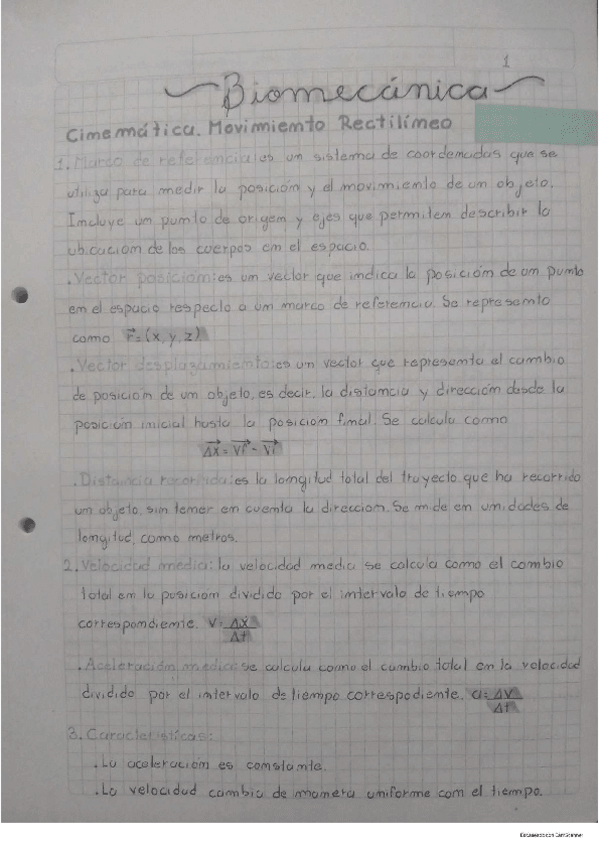 1
Biomecánica
Cinemática. Movimiento Rectilíneo
1. Marco de referencia: es un sistema de coordenadas que se
utiliza para medir la posición y el movimiento de un objeto.
Incluye un punto de origen y ejes que permiten describir la
ubicación de los cuerpos en el espacio.
. Vector posición: es un vector que indica la posición de un punto
en el espacio respecto a un marco de referencia. Se representa
como r⃗=(x, y, z)
. Vector desplazamiento: es un vector que representa el cambio
de posición de un objeto, es decir, la distancia y dirección desde la
posición inicial hasta la posición final. Se calcula como
Δx⃗ = Vf⃗ - Vi⃗
. Distancia recorrida: es la longitud total del trayecto que ha recorrido
un objeto, sin tener en cuenta la dirección. Se mide en unidades de
longitud, como metros.
2. Velocidad media: la velocidad media se calcula como el cambio
total en la posición dividido por el intervalo de tiempo
correspondiente. V= Δx/Δt
. Aceleración media: se calcula como el cambio total en la velocidad
dividido por el intervalo de tiempo correspodiente. a= ΔV/Δt
3. Características:
. La aceleración es constante.
. La velocidad cambia de manera uniforme con el tiempo.
Escaneado con CamScanner